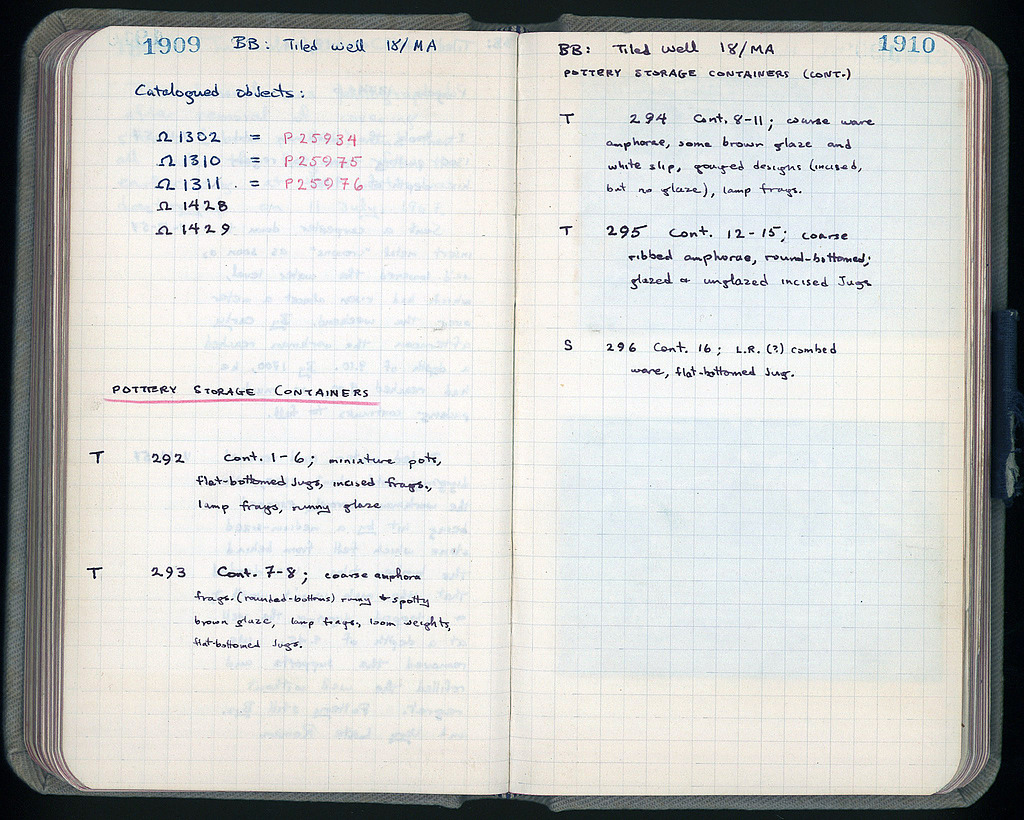 1909 BB: Tiled well 18/MA
Catalogued objects:
Ω 1302 = P 25934
Ω 1310 = P 25975
Ω 1311. = P 25976
Ω 1428
Ω 1429
POTTERY STORAGE CONTAINERS
T 292 Cont. 1-6; miniature pots,
flat-bottomed jugs, incised frags.,
lamp frags, runny glaze
T 293 Cont. 7-8; coarse amphora
frags. (rounded-bottoms) runny + spotty
brown glaze, lamp frags., loom weights,
flat-bottomed jugs.
BB: Tiled well 18/MA 1910
POTTERY STORAGE CONTAINERS (CONT.)
T 294 Cont. 8-11; coarse ware
amphorae, some brown glaze and
white slip, gouged designs (incised,
but no glaze), lamp frags.
T 295 Cont. 12-15; coarse
ribbed amphorae, round-bottomed;
glazed + unglazed incised Jugs
S 296 Cont. 16; L.R. (?) combed
ware, flat-bottomed Jug.